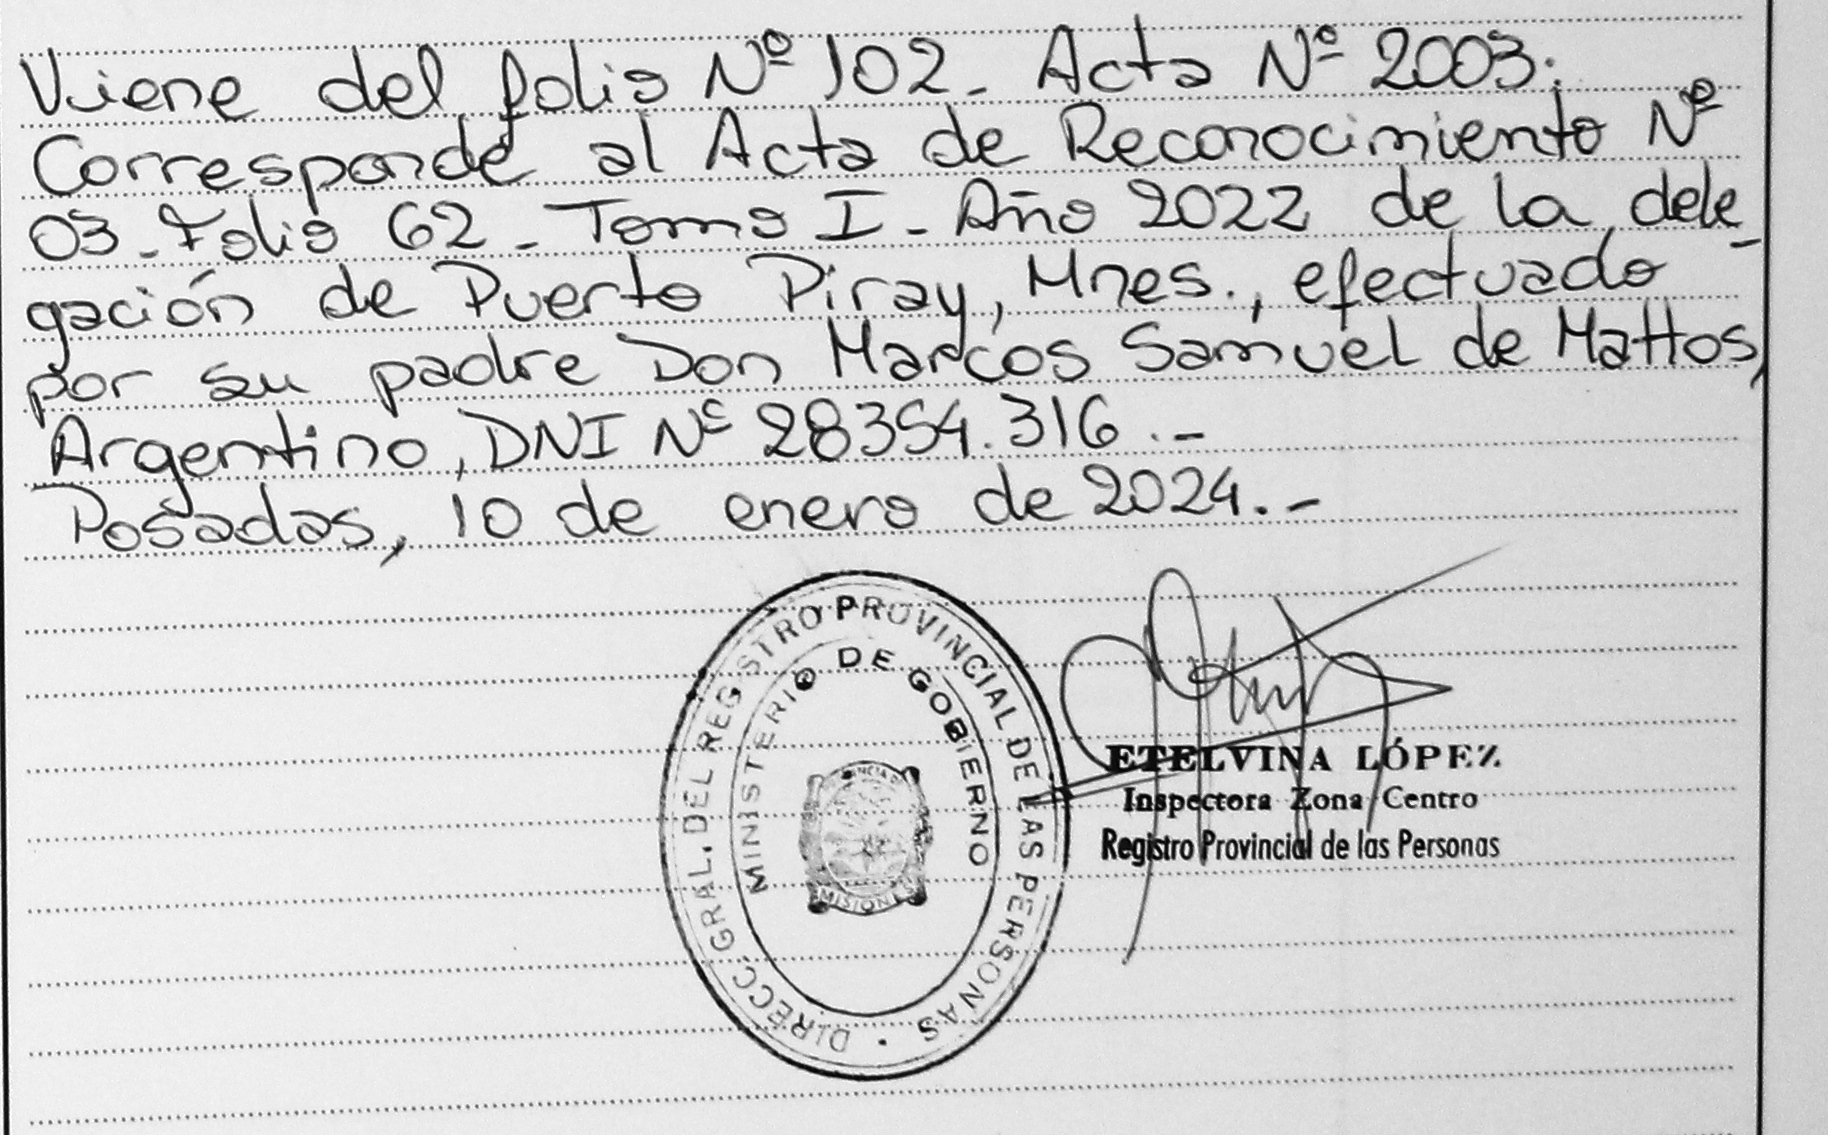 Viene del folio Nº 102. Acta Nº 2003.
Corresponde al Acta de Reconocimiento Nº
03. Folio 62. Tomo I. Año 2022 de la dele-
gación de Puerto Piray, Mnes., efectuado
por su padre Don Marcos Samuel de Mattos,
Argentino, DNI Nº 28354.316.-
Posadas, 10 de enero de 2024.-
DIRECC. GRAL. DEL REGISTRO PROVINCIAL DE LAS PERSONAS
MINISTERIO DE GOBIERNO
MISIONES
ETELVINA LÓPEZ
Inspectora Zona Centro
Registro Provincial de las Personas